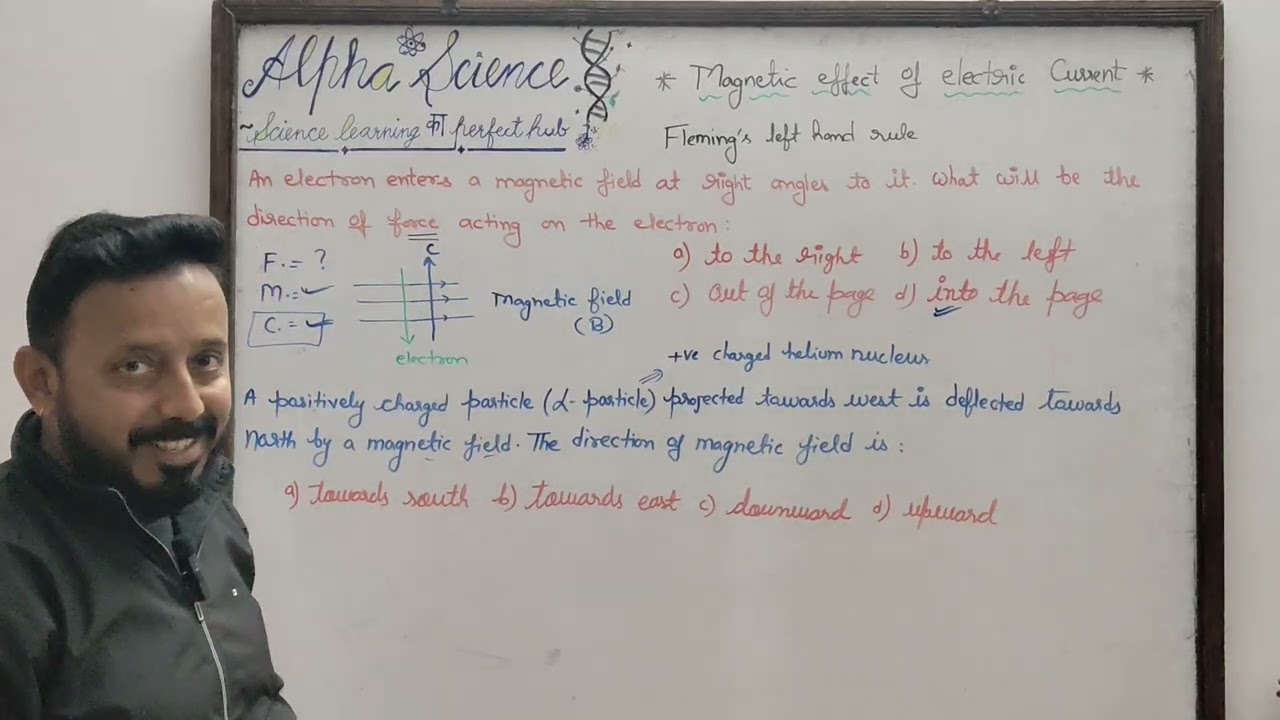 Alpha Science
~Science learning का perfect hub
* Magnetic effect of electric Current *
Fleming's left hand rule
An electron enters a magnetic field at right angles to it. what will be the
direction of force acting on the electron:
F. = ?
M. =
C. =
C
electron
Magnetic field
(B)
a) to the right b) to the left
c) out of the page d) into the page
+ve charged helium nucleus
A positively charged particle (α-particle) projected towards west is deflected towards
North by a magnetic field. The direction of magnetic field is:
a) towards south b) towards east c) downward d) upward